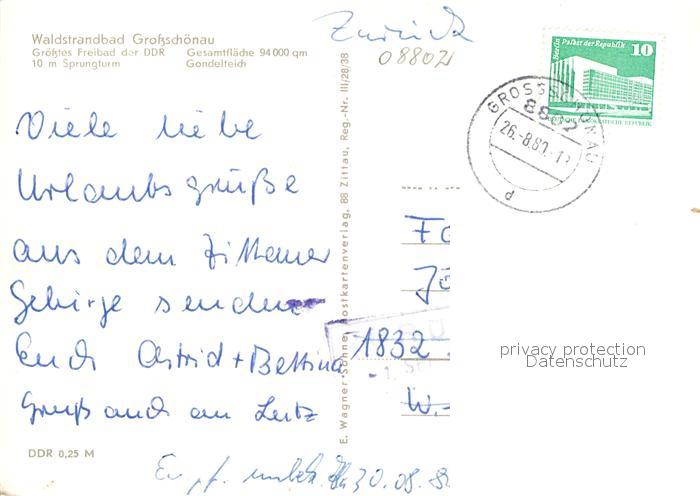 Waldstrandbad Großschönau
Größtes Freibad der DDR Gesamtfläche 94 000 qm
10 m Sprungturm Gondelteich
Zurück
08802
Berlin Palast der Republik 10
DEMOKRATISCHE REPUBLIK
GROSSSCHÖNAU
8802
26.-8.80
Viele liebe
Urlaubsgrüße
aus dem Zittauer
Gebirge senden
Euch Astrid + Bettina
Gruß auch an Lutz
E. Wagner Söhne, Postkartenverlag, 88 Zittau, Reg.-Nr. III/28/38
1832
W.-
privacy protection
Datenschutz
DDR 0,25 M
30.08.8